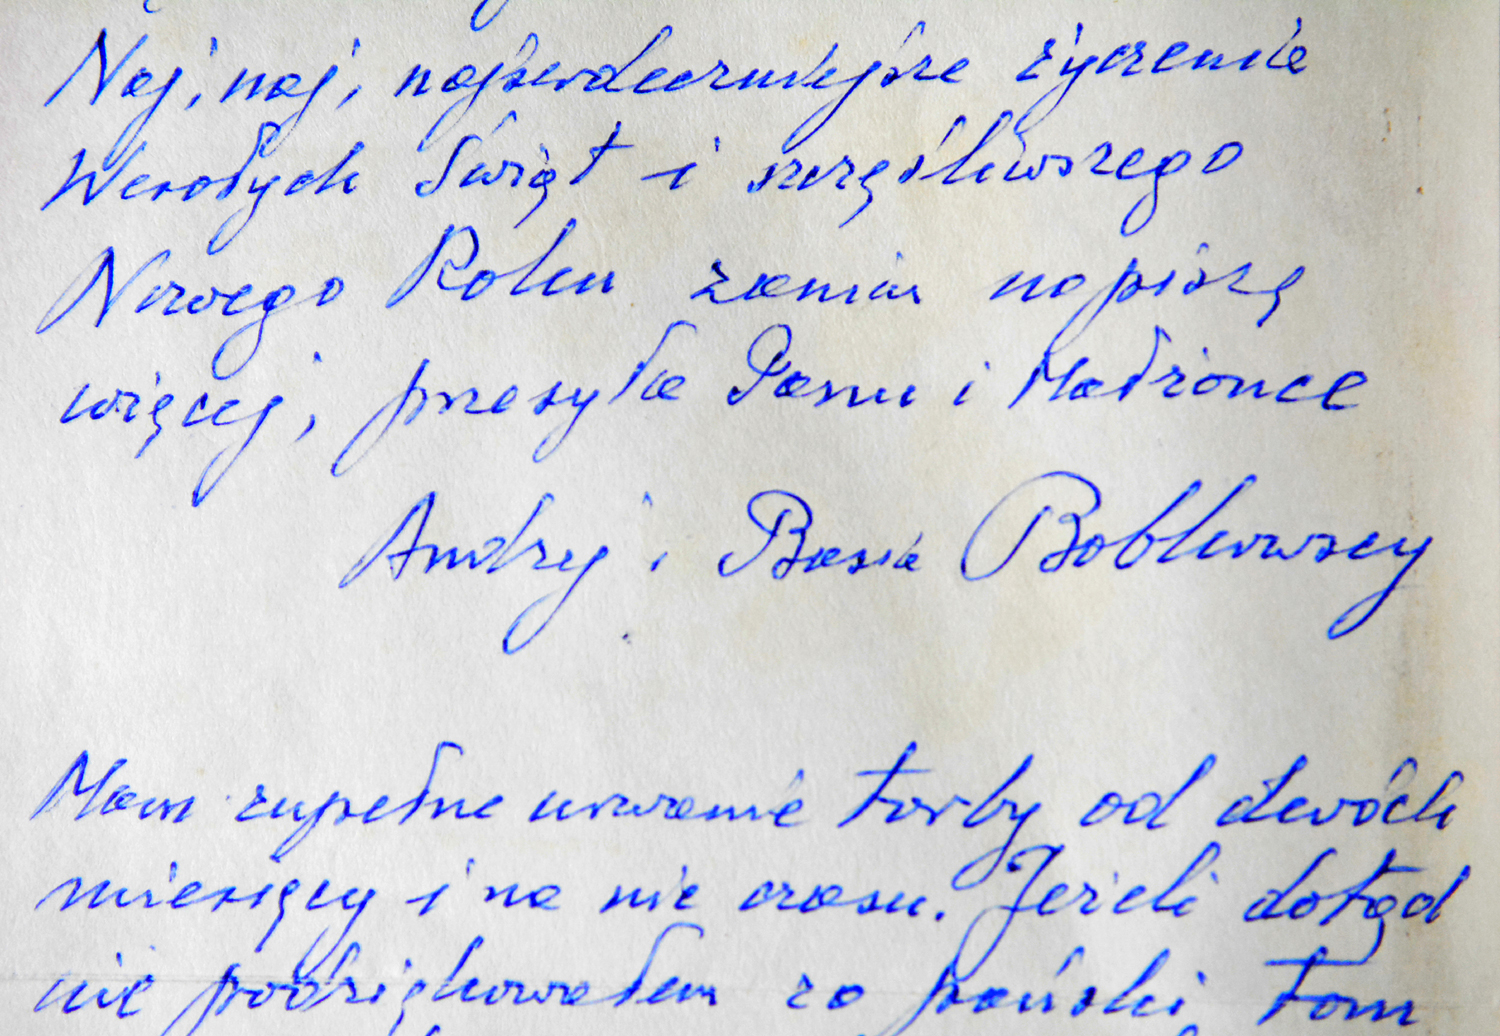 Naj, naj, najserdeczniejsze życzenia
Wesołych Świąt i szczęśliwszego
Nowego Roku zanim napiszę
więcej, przesyła Panu i Małżonce
Andrzej i Basia Bobkowscy
Mam zupełne urwanie torby od dwóch
miesięcy i na nic czasu. Jeżeli dotąd
nie podziękowałem za pański tom